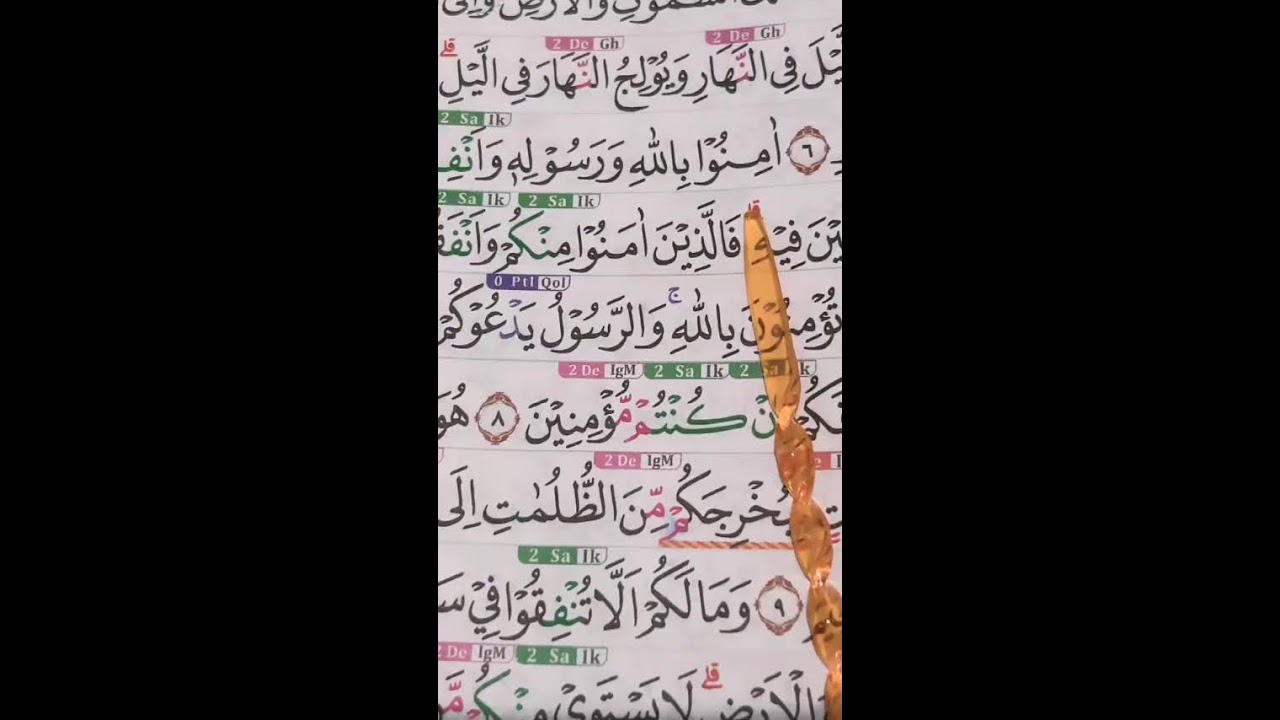 السَّمٰوٰتِ وَالْاَرْضِ وَاِلَى
2 De Gh 2 De Gh
يْلَ فِى النَّهَارِ وَيُوْلِجُ النَّهَارَ فِى الَّيْلِ ۗ
2 Sa Ik
٦ اٰمِنُوْا بِاللّٰهِ وَرَسُوْلِهٖ وَاَنْفِ
2 Sa Ik 2 Sa Ik
يْنَ فِيْهِ ۗ فَالَّذِيْنَ اٰمَنُوْا مِنْكُمْ وَاَنْفَقُ
0 Ptl Qol
تُؤْمِنُوْنَ بِاللّٰهِ ۚ وَالرَّسُوْلُ يَدْعُوْكُمْ
2 De IgM 2 Sa Ik 2 Sa Ik
قَكُمْ اِنْ كُنْتُمْ مُّؤْمِنِيْنَ ٨ هُوَ
2 De IgM
تٍ لِّيُخْرِجَكُمْ مِّنَ الظُّلُمٰتِ اِلَى
2 Sa Ik
٩ وَمَا لَكُمْ اَلَّا تُنْفِقُوْا فِيْ سَ
2 De IgM 2 Sa Ik
وَالْاَرْضِ ۗ لَا يَسْتَوِيْ مِنْكُمْ مَّ